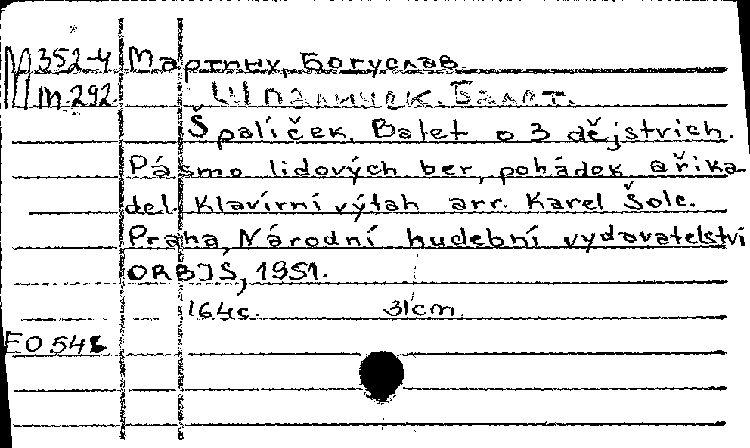 М 352-4 Мартину, Богуслав.
М-292 Шпаличек. Балет.
Špalíček. Balet o 3 dějstvích.
Pásmo lidových her, pohádek a říka-
del. Klavírní výtah arr. Karel Šolc.
Praha, Národní hudební vydavatelství
ORBIS, 1951.
164c. 31cm.
EO 54